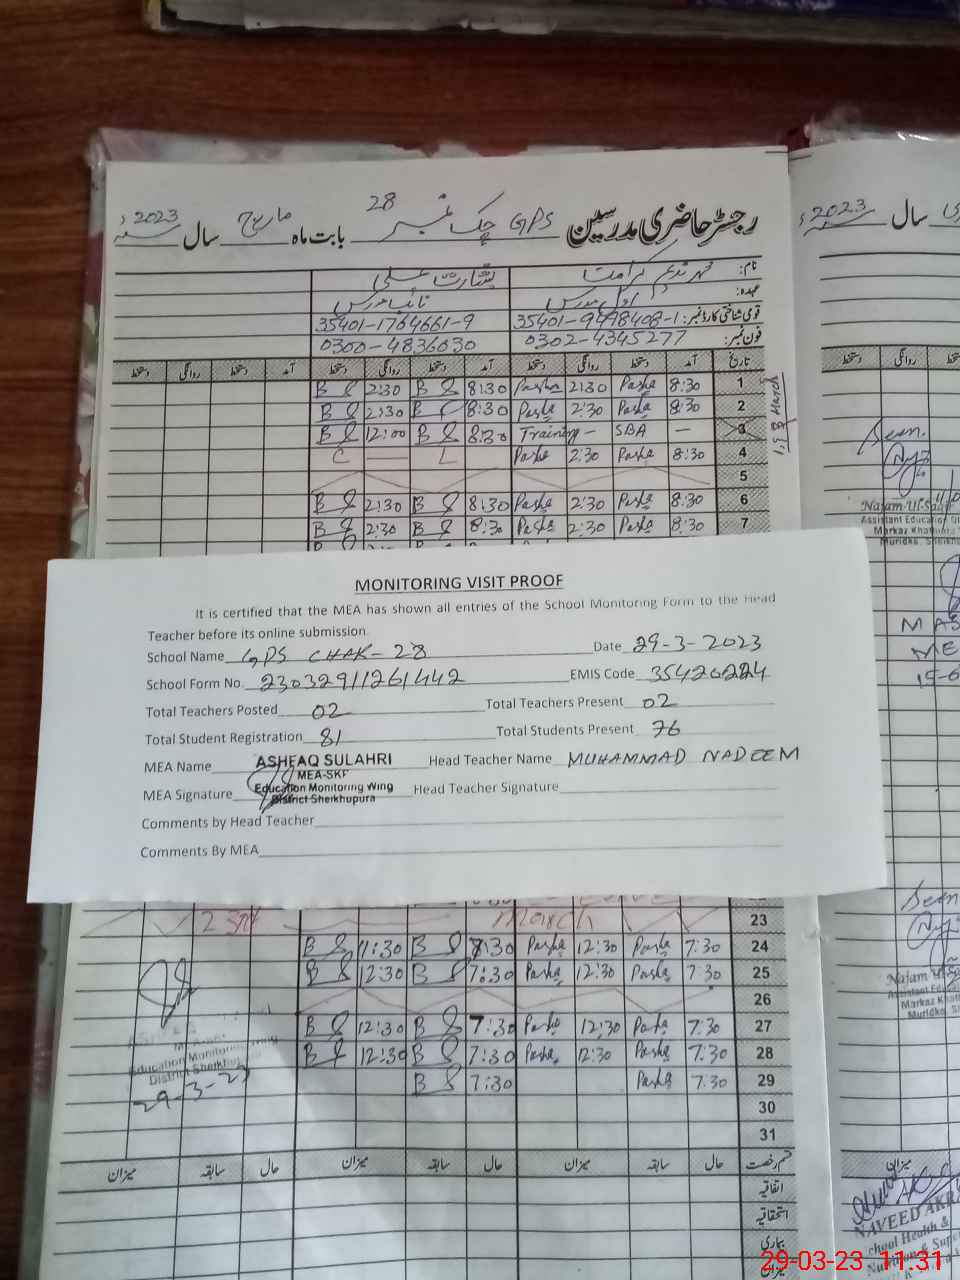 رجسٹر حاضری مدرسین GPS چک نمبر 28 بابت ماہ مارچ سال 2023ء
نام: محمد ندیم کرامت بشارت علی
عہدہ: اول مدرس نائب مدرس
قومی شناختی کارڈ نمبر: 35401-9498408-1 35401-1764661-9
فون نمبر: 0302-4345277 0300-4836030
تاریخ آمد دستخط روانگی دستخط آمد دستخط روانگی دستخط آمد دستخط روانگی دستخط
B 2:30 B 8:30 Pasha 2:30 Pasha 8:30 1
B 2:30 B 8:30 Pasha 2:30 Pasha 8:30 2
B 12:00 B 8:30 Training - SBA — 3
C — L Pasha 2:30 Pasha 8:30 4
5
B 2:30 B 8:30 Pasha 2:30 Pasha 8:30 6
B 2:30 B 8:30 Pasha 2:30 Pasha 8:30 7
MONITORING VISIT PROOF
It is certified that the MEA has shown all entries of the School Monitoring Form to the Head
Teacher before its online submission.
School Name GPS CHAK-28 Date 29-3-2023
School Form No. 23032911261442 EMIS Code 35426224
Total Teachers Posted 02 Total Teachers Present 02
Total Student Registration 81 Total Students Present 76
MEA Name ASHFAQ SULAHRI Head Teacher Name MUHAMMAD NADEEM
MEA-SKP
MEA Signature Education Monitoring Wing Head Teacher Signature
District Sheikhupura
Comments by Head Teacher
Comments By MEA
23 March 23
B 11:30 B 7:30 Pasha 12:30 Pasha 7:30 24
B 12:30 B 7:30 Pasha 12:30 Pasha 7:30 25
26
B 12:30 B 7:30 Pasha 12:30 Pasha 7:30 27
B 12:30 B 7:30 Pasha 12:30 Pasha 7:30 28
B 7:30 Pasha 7:30 29
30
31
Education Monitoring Wing
District Sheikhupura
29-3-23
قسم رخصت حال سابقہ میزان حال سابقہ میزان حال سابقہ میزان
اتفاقیہ
استحقاقیہ
بیماری
میزان
سال 2023ء
دستخط روانگی
Seen.
Najam-Ul-Sa
Assistant Education O
Markaz Kha
Muridke, Sheikh
MAS
ME
Seen
Najam Ul-Sa
Assistant Educa
Markaz Kha
Muridke, S
میزان
NAVEED AKR
School Health &
Nutrition & Supe
29-03-23 11:31